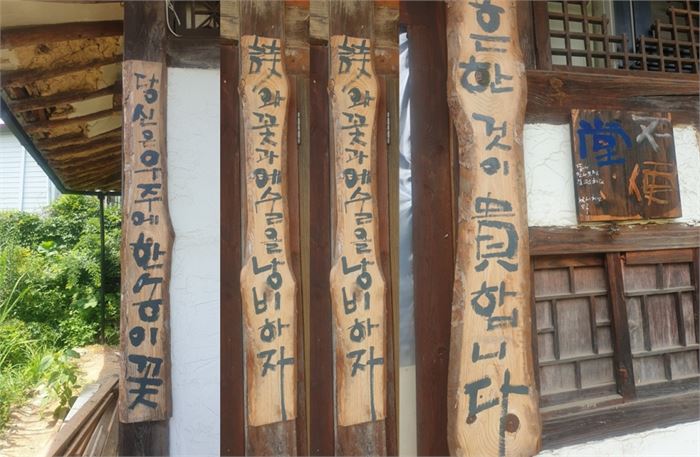 당신은 우주에 한송이 꽃
와 꽃과 예술을 낭비하자
와 꽃과 예술을 낭비하자
흔한 것이 貴합니다
不便
堂